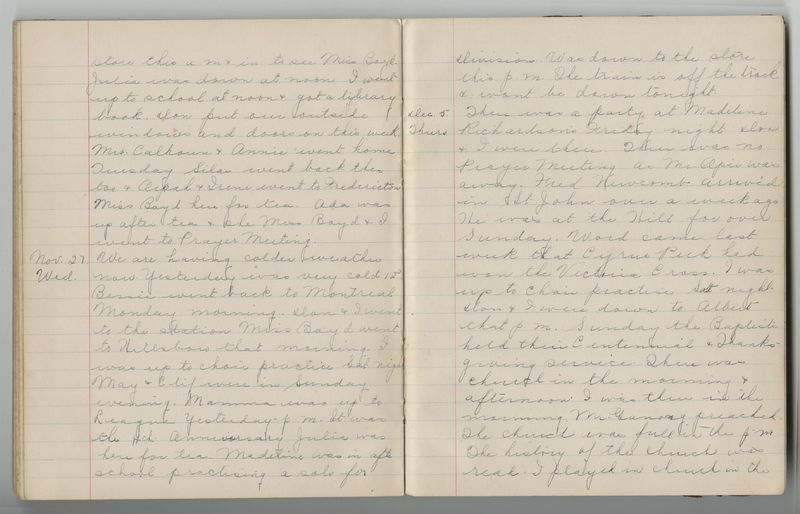 store this a m & in to see Miss Boyd.
Julia was down at noon I went
up to school at noon & got a library
book. Don put our outside
windows and doors on this week
Mrs. Calhoun & Annie went home
Tuesday Silas went back then
too & & Irene went to Fredericton
Miss Boyd here for tea. Ada was
up after tea & she Miss Boyd & I
went to Prayer Meeting.
Nov. 27 We are having colder weather
Wed. now Yesterday was very cold
Bessie went back to Montreal
Monday morning. Don & I went
to the station Miss Boyd went
to Hillsboro that morning. I
was up to choir practice Sat night
May & Clif were in Sunday
evening. Mamma was up to
League Yesterday p. m. It was
the Anniversary Julia was
here for tea. Madeline was in aft
school practising a solo for
division. Was down to the store
this p m The train is off the track
& wont be down tonight
Dec. 5 There was a party at Madeline
Thurs Richardson's Friday night Don
& I were there. There was no
Prayer Meeting as Mr Opie was
away. Fred Newcomb arrived
in St John over a week ago
He was at the Hill for over
Sunday. Word came last
week that Cyrus Peck had
won the Victoria Cross. I was
up to choir practise Sat night
Don & I were down to Albert
that p m. Sunday the Baptists
held their Centennial & Thanks-
giving service There was
church in the morning &
afternoon I was there in the
morning Mr Ganong preached.
The church was full in the p m
The history of the church was
read. I played in church in the